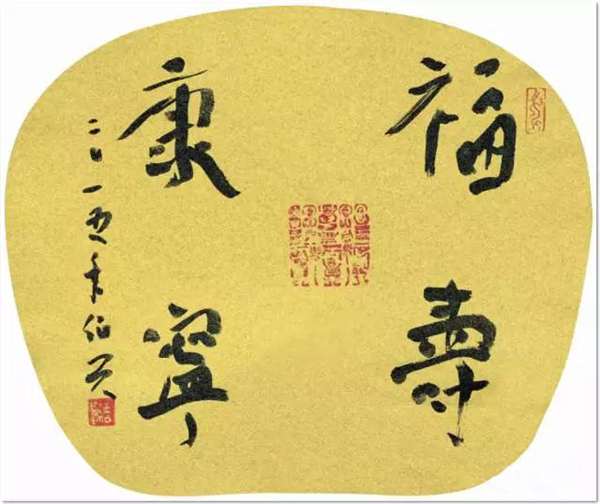 福壽
康寧
二〇一五年伯